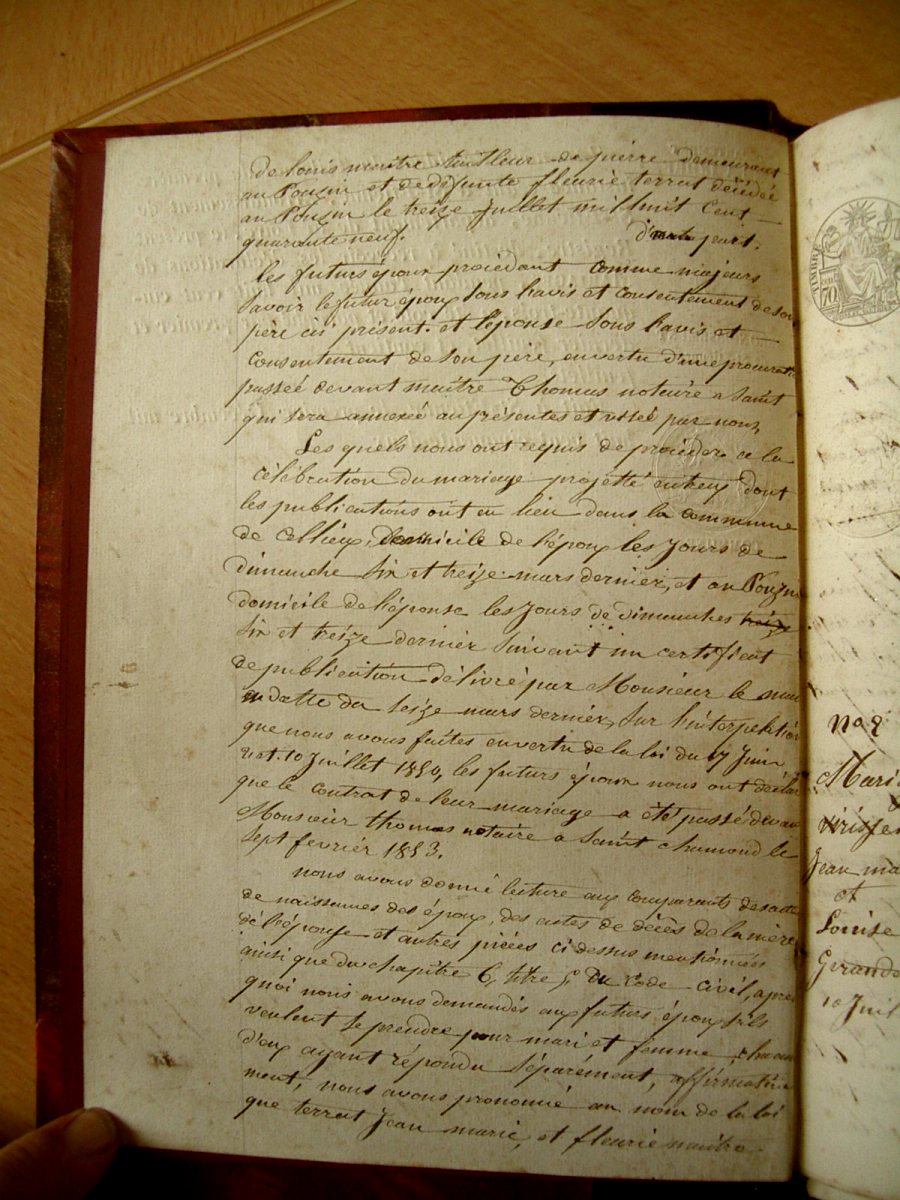 de louis maitre tailleur de pierre demeurant
au Pouzin et de défunte fleurie terrat décédée
au Pouzin le treize Juillet mil huit Cent
quarante neuf. d'autre part.
les futurs époux procédant comme majeurs
savoir le futur époux sous l'avis et Consentement de son
père ici présent. et l'épouse sous l'avis et
Consentement de son père, en vertu d'une procuration
passée devant maitre Thomas notaire a Saint
qui sera annexée au présentes et visée par nous,
Les quels nous ont requis de procéder a la
célébration du mariage projetté entreux dont
les publications ont eu lieu dans la commune
de Cellieux, domicile de l'époux les Jours de
dimanche six et treize mars dernier, et au Pouzin
domicile de l'épouse les Jours de dimanches treize
six et treize dernier suivant un certificat
de publication délivré par Monsieur le maire
en datte du seize mars dernier, sur l'interpellation
que nous avons faites en vertu de la loi du 17 Juin
et 10 Juillet 1850, les futurs époux nous ont déclaré
que le contrat de leur mariage a été passé devant
Monsieur thomas notaire a Saint chamond le
sept fevrier 1853.
nous avons donné lecture aux comparants des actes
de naissances des époux, des actes de décès de la mère
de l'épouse et autres pièces ci dessus mentionnées
ainsi que du chapitre 6, titre 5, du Code civil, après
quoi nous avons demandés aux futurs époux s'ils
veulent se prendre pour mari et femme chacun
d'eux ayant répondu séparément, affirmative
ment, nous avons prononcé au nom de la loi
que terrat Jean marie, et fleurie maitre
TIMBRE
70
no 9
Mari
Jean ma
et
Louise
10 Juil